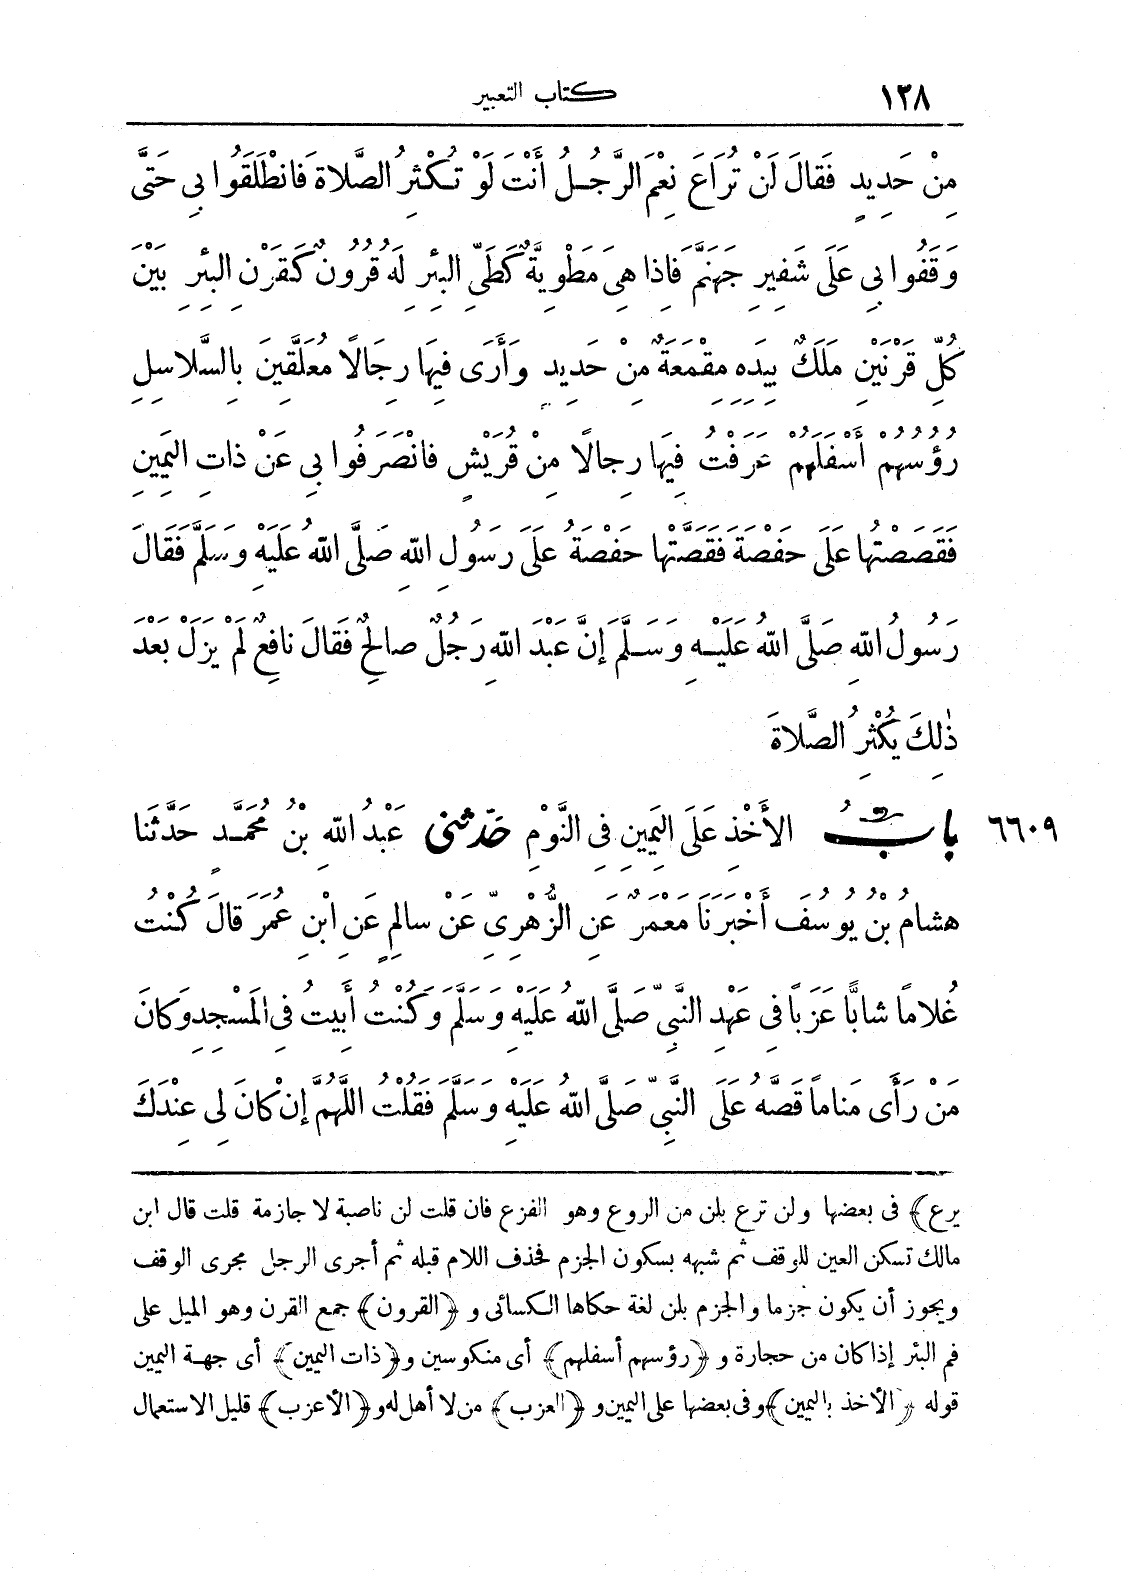 ١٣٨ كتاب التعبير
مِنْ حَدِيدٍ فَقَالَ لَنْ تُرَاعَ نِعْمَ الرَّجُلُ أَنْتَ لَوْ تُكْثِرُ الصَّلَاةَ فَانْطَلَقُوا بِي حَتَّى
وَقَفُوا بِي عَلَى شَفِيرِ جَهَنَّمَ فَإِذَا هِيَ مَطْوِيَّةٌ كَطَيِّ الْبِئْرِ لَهُ قُرُونٌ كَقَرْنِ الْبِئْرِ بَيْنَ
كُلِّ قَرْنَيْنِ مَلَكٌ بِيَدِهِ مِقْمَعَةٌ مِنْ حَدِيدٍ وَأَرَى فِيهَا رِجَالًا مُعَلَّقِينَ بِالسَّلَاسِلِ
رُؤُسُهُمْ أَسْفَلَهُمْ عَرَفْتُ فِيهَا رِجَالًا مِنْ قُرَيْشٍ فَانْصَرَفُوا بِي عَنْ ذَاتِ الْيَمِينِ
فَقَصَصْتُهَا عَلَى حَفْصَةَ فَقَصَّتْهَا حَفْصَةُ عَلَى رَسُولِ اللهِ صَلَّى اللهُ عَلَيْهِ وَسَلَّمَ فَقَالَ
رَسُولُ اللهِ صَلَّى اللهُ عَلَيْهِ وَسَلَّمَ إِنَّ عَبْدَ اللهِ رَجُلٌ صَالِحٌ فَقَالَ نَافِعٌ لَمْ يَزَلْ بَعْدَ
ذٰلِكَ يُكْثِرُ الصَّلَاةَ
٦٦٠٩ بابُ الْأَخْذِ عَلَى الْيَمِينِ فِي النَّوْمِ حَدَّثَنِي عَبْدُ اللهِ بْنُ مُحَمَّدٍ حَدَّثَنَا
هِشَامُ بْنُ يُوسُفَ أَخْبَرَنَا مَعْمَرٌ عَنِ الزُّهْرِيِّ عَنْ سَالِمٍ عَنِ ابْنِ عُمَرَ قَالَ كُنْتُ
غُلَامًا شَابًّا عَزَبًا فِي عَهْدِ النَّبِيِّ صَلَّى اللهُ عَلَيْهِ وَسَلَّمَ وَكُنْتُ أَبِيتُ فِي الْمَسْجِدِ وَكَانَ
مَنْ رَأَى مَنَامًا قَصَّهُ عَلَى النَّبِيِّ صَلَّى اللهُ عَلَيْهِ وَسَلَّمَ فَقُلْتُ اللَّهُمَّ إِنْ كَانَ لِي عِنْدَكَ
يرع﴾ فى بعضها ولن ترع بلن من الروع وهو الفزع فان قلت لن ناصبة لا جازمة قلت قال ابن
مالك تسكن العين للوقف ثم شبهه بسكون الجزم فحذف اللام قبله ثم أجرى الرجل مجرى الوقف
ويجوز أن يكون جزما والجزم بلن لغة حكاها الكسائى و ﴿القرون﴾ جمع القرن وهو الميل على
فم البئر إذا كان من حجارة و ﴿رؤسهم أسفلهم﴾ أى منكوسين و﴿ذات اليمين﴾ أى جهة اليمين
قوله ﴿الأخذ باليمين﴾ وفى بعضها على اليمين و ﴿العزب﴾ من لا أهل له و﴿الأعزب﴾ قليل الاستعمال